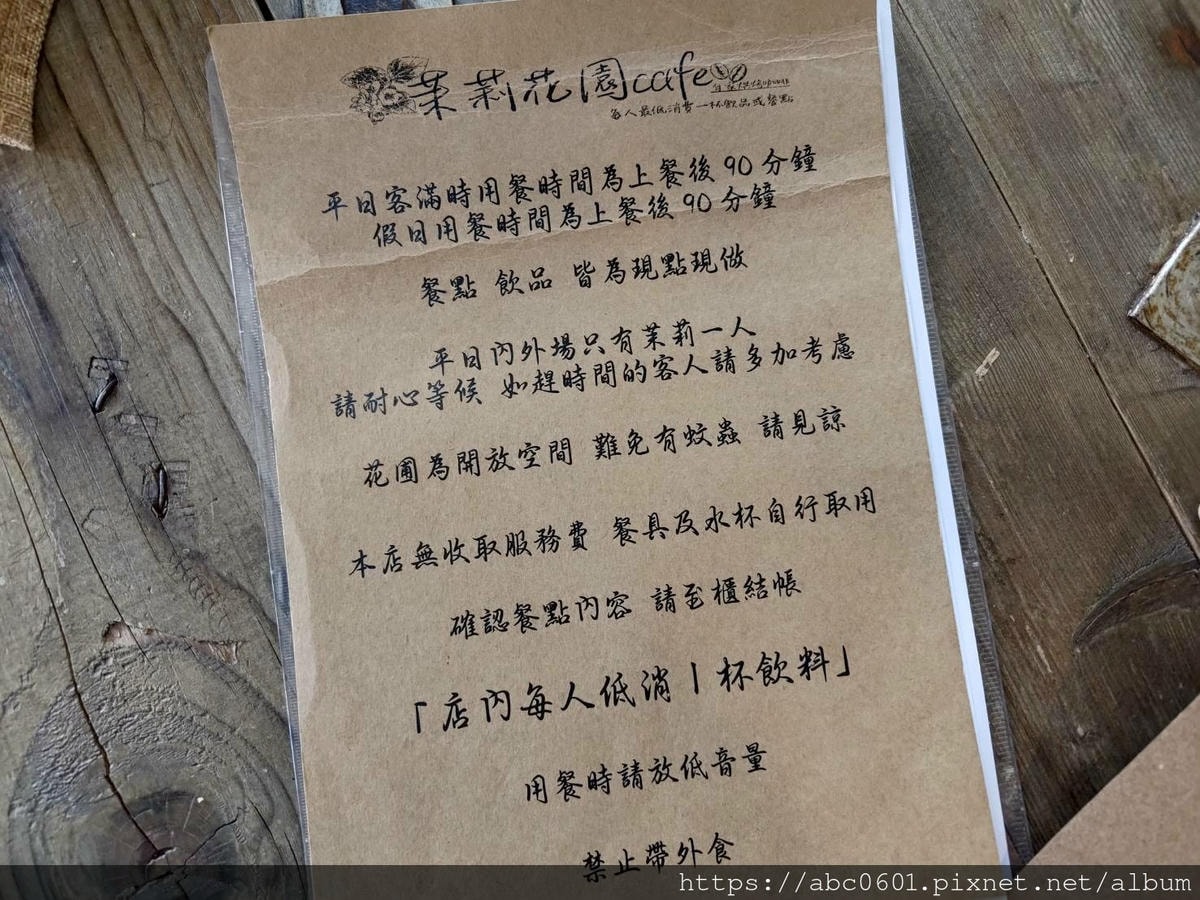 茉莉花園cafe
每人最低消費一杯飲品或餐點
平日客滿時用餐時間為上餐後90分鐘
假日用餐時間為上餐後90分鐘
餐點 飲品 皆為現點現做
平日內外場只有茉莉一人
請耐心等候 如趕時間的客人請多加考慮
花圃為開放空間 難免有蚊蟲 請見諒
本店無收取服務費 餐具及水杯自行取用
確認餐點內容 請至櫃結帳
「店內每人低消1杯飲料」
用餐時請放低音量
禁止帶外食
https://abc0601.pixnet.net/album